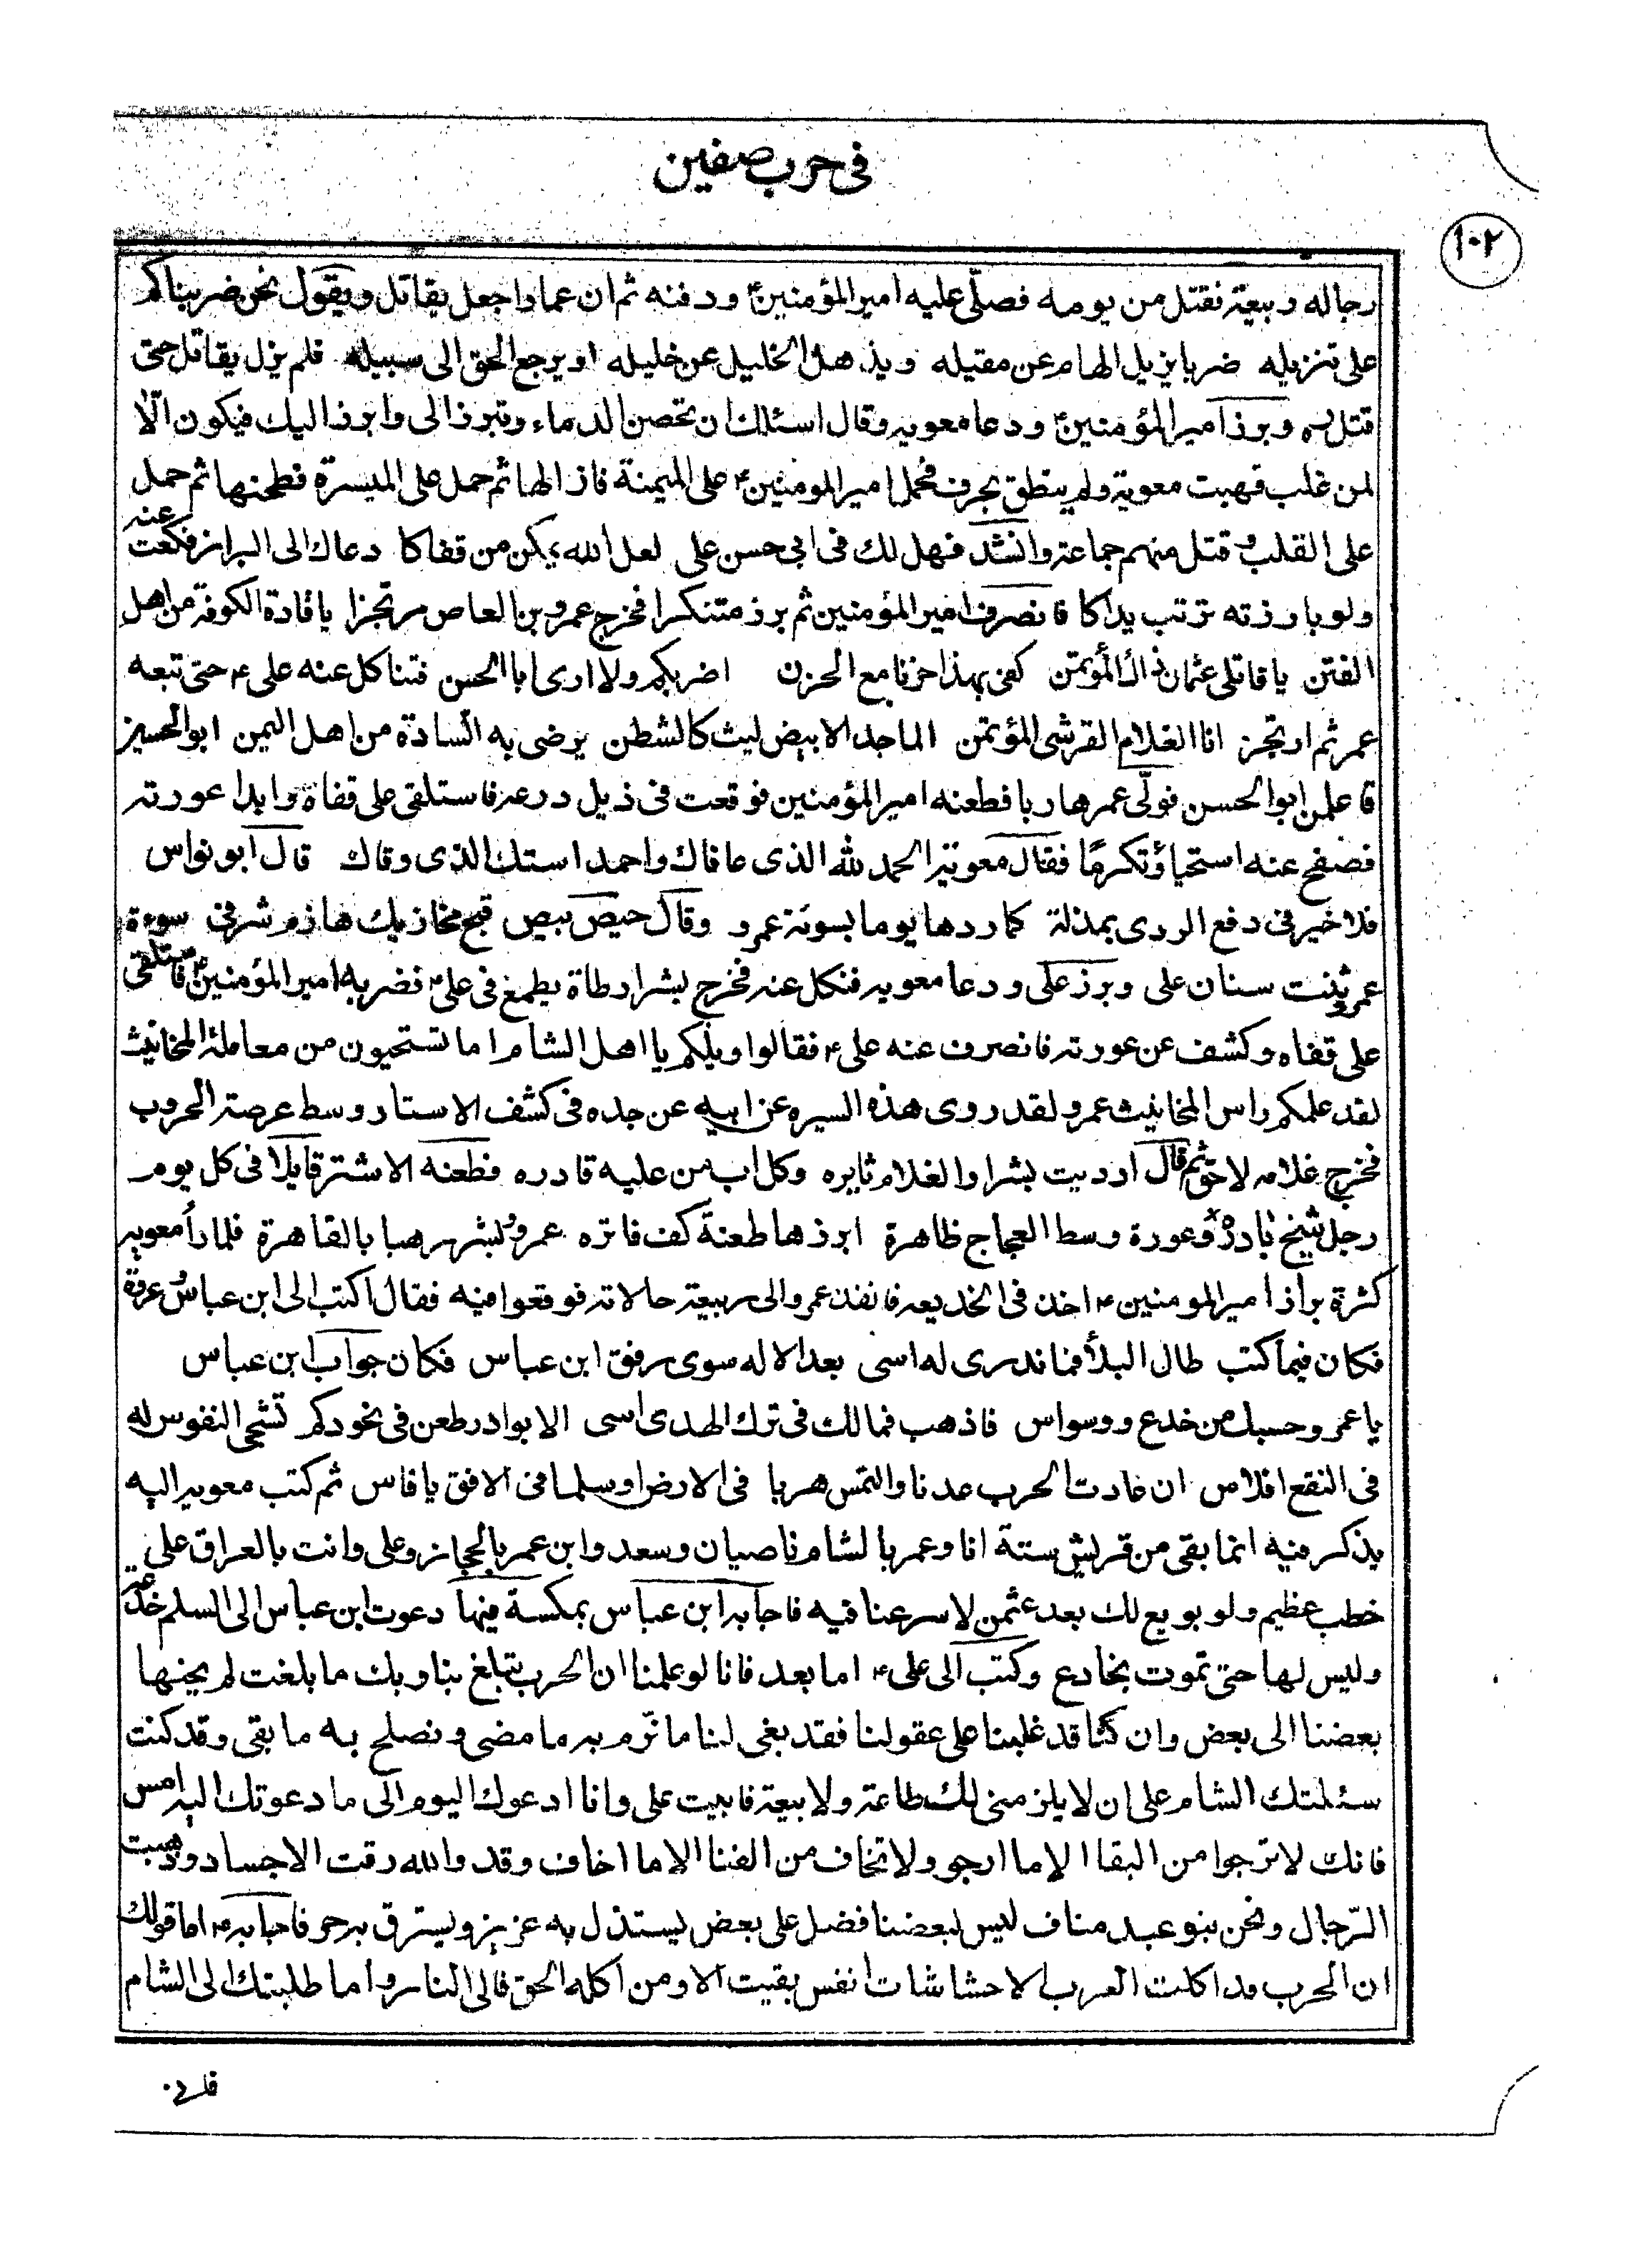 فى حرب صفين
١٠٢
رجاله وبيعة فقتل من يومه فصلّى عليه امير المؤمنين ع ودفنه ثم ان عمارا جعل يقاتل ويقول نحن ضربناكم
على تنزيله ضربا يزيل الهام عن مقيله ويذهل الخليل عن خليله او يرجع الحق الى سبيله فلم يزل يقاتل حتى
قتل ره وبرز امير المؤمنين ع ودعا معويه وقال اسئلك ان تحصن الدماء وتبرز الى وابرز اليك فيكون الّا
لمن غلب فهبت معوية ولم ينطق بحرف فحمل امير المومنين ع على الميمنة فازالها ثم حمل على الميسرة فطحنها ثم حمل
على القلب وقتل منهم جماعة وانشد فهل لك فى ابى حسن على لعل الله يمكن من قفاكا دعاك الى البراز فكعت عنه
ولو بارزته تربت يداكا فانصرف امير المؤمنين ثم برز متنكرا فخرج عمرو بن العاص مرتجزا يا قادة الكوفة من اهل
الفتن يا قاتلى عثمان ذاك المؤتمن كفى بهذا حزنا مع الحزن اضربكم ولا ارى ابا الحسن فتناكل عنه على ع حتى تبعه
عمر ثم ارتجز انا الغلام القرشى المؤتمن الماجد الابيض ليث كالشطن يرضى به السادة من اهل اليمن ابو الحسين
فاعلمن ابو الحسن فولّى عمر هاربا فطعنه امير المؤمنين فوقعت فى ذيل درعه فاستلقى على قفاه وابدا عورته
فصفح عنه استحياؤتكرمًا فقال معوية الحمد لله الذى عافاك واحمد استك الذى وقاك قال ابو نواس
فلا خير فى دفع الردى بمذلة كما ردها يوما بسوئة عمرو وقال حيص بيص قبح مخازيك هازم شرفى سوءة
عمرو ثنت سنان على وبرز على ودعا معويه فنكل عنه فخرج بشر ارطاة يطمع فى على ع فضربه امير المؤمنين ع فاستلقى
على قفاه وكشف عن عورته فانصرف عنه على ع فقالوا ويلكم يا اهل الشام اما تستحيون من معاملة المخانيث
لقد علمكم راس المخانيث عمرو لقد روى هذه السيره عن ابيه عن جده فى كشف الاستار وسط عرصة الحروب
فخرج غلامه لاحق ثم قال ارديت بشرا والغلام ثايره وكل اب من عليه قادره فطعنه الاشتر قايلا فى كل يوم
رجل شيخ بادره وعورة وسط العجاج ظاهرة ابرزها طعنة كف فاتره عمرو وبشر رهبا بالقاهرة فلما رأ معويه
كثرة براز امير المومنين ع اخذ فى الخديعه فانفذ عمرو الى ربيعة حالاته فوقعوا فيه فقال اكتب الى ابن عباس وغره
فكان فيما كتب طال البلأ فما ندرى له اسى بعد الاله سوى رفق ابن عباس فكان جواب ابن عباس
يا عمرو حسبك من خدع ووسواس فاذهب فمالك فى ترك الهدى اسى الا بوادر طعن فى نحوركم تشجى النفوس له
فى النقع افلاس ان عادت الحرب عدنا والتمس هربا فى الارض او سلما فى الافق يا قاس ثم كتب معويه اليه
يذكر فيه انما بقى من قريش ستة انا وعمر بالشام ناصيان وسعد وابن عمر بالحجاز وعلى وانت بالعراق على
خطب عظيم ولو بويع لك بعد عثمن لاسرعنا فيه فاجابه ابن عباس بمكسة فيها دعوت ابن عباس الى السلم خدعة
وليس لها حتى تموت بخادع وكتب الى على ع اما بعد فانا لو علمنا ان الحرب تبلغ بنا وبك ما بلغت لم يجنها
بعضنا الى بعض وان كنّا قد غلبنا على عقولنا فقد بقى لنا ما نرّم به ما مضى ونصلح به ما بقى وقد كنت
سئلتك الشام على ان لا يلزمنى لك طاعة ولا بيعة فابيت على وانا ادعوك اليوم الى ما دعوتك اليه امس
فانك لا ترجوا من البقا الا ما ارجو ولا تخاف من الفنا الا ما اخاف وقد والله رقت الاجساد وذهبت
الرّجال ونحن بنو عبد مناف ليس لبعضنا فضل على بعض يستذل به عزيز ويسترق به حر فاجابه ع اما قولك
ان الحرب قد اكلت العرب الا حشاشات انفس بقيت الا ومن اكله الحق فالى النار واما طلبتك الى الشام